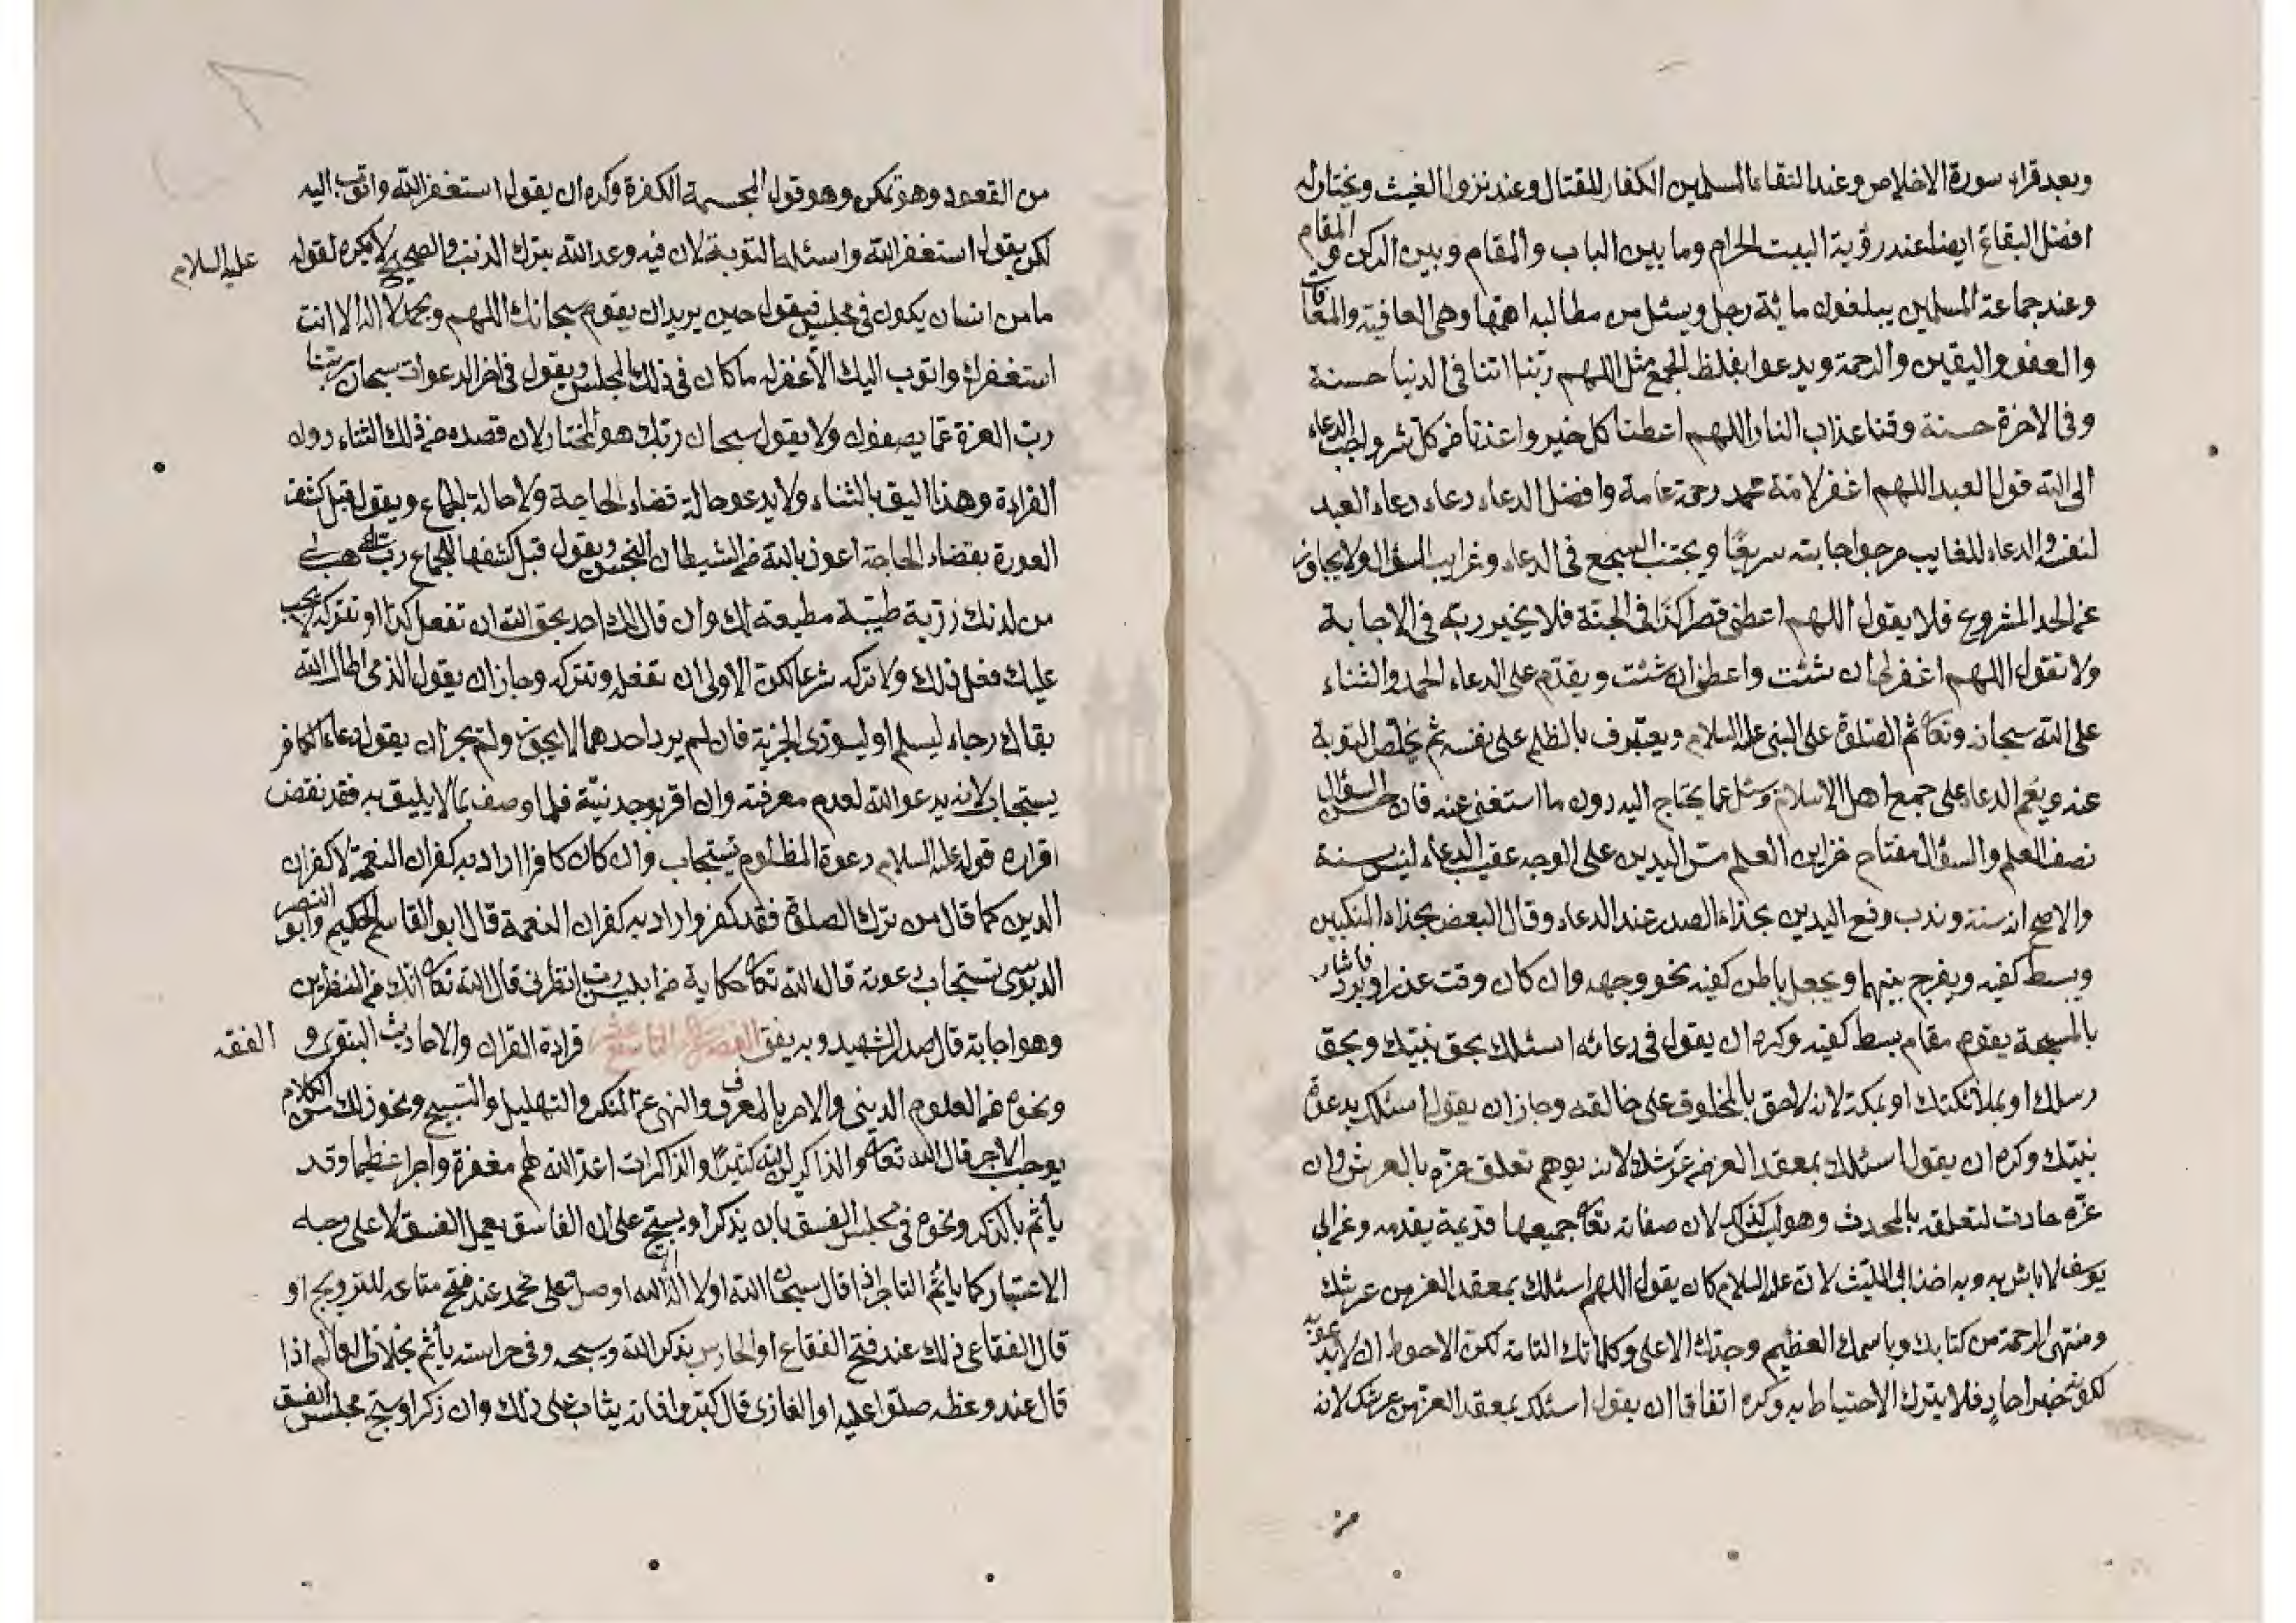 وبعد قراءة سورة الاخلاص وعند التقاء المسلمين الكفار للقتال وعند نزول الغيث ويختار له
افضل البقاع ايضا عند رؤية البيت الحرام وما بين الباب والمقام وبين الركن والمقام
وعند جماعة المسلمين يبلغون مائة رجل ويسئل من مطالبه اهمها وهى العافية والمعافات
والعفو واليقين والرحمة ويدعو بلفظ الجمع مثل اللهم ربنا اتنا فى الدنيا حسنة
وفى الاخرة حسنة وقنا عذاب النار اللهم اعطنا كل خير واعذنا من كل شر واحب الدعاء
الى الله قول العبد اللهم اغفر لامة محمد رحمة عامة وافضل الدعاء دعاء دعاء العبد
لنفسه والدعاء للغايب مرجو اجابته سريعا ويجتنب السجع فى الدعاء وغرايب السؤال ولا يجاوز
عن الحد المشروع فلا يقول اللهم اعطنى قصرا كذا فى الجنة فلا يخير ربه فى الاجابة
ولا تقول اللهم اغفر لى ان شئت واعطنى ان شئت ويقدم على الدعاء الحمد والثناء
على الله سبحانه وتعا ثم الصلوة على النبى عليه السلام ويعترف بالظلم على نفسه ثم يخلص التوبة
عنه ويعم الدعاء على جمع اهل الاسلام وسئل عما يحتاج اليه دون ما استغنى عنه فان حسن السؤال
نصف العلم والسؤال مفتاح خزاين العلم مس اليدين على الوجه عقيب الدعاء ليس بسنة
والاصح انه سنة وندب رفع اليدين بحذاء الصدر عند الدعاء وقال البعض بحذاء المنكبين
وبسط كفيه ويفرج بينهما ويجعل باطن كفيه نحو وجهه وان كان وقت عذر او برد فاشار
بالمسبحة يقوم مقام بسط كفيه وكره ان يقول فى دعائه اسئلك بحق نبيك وبحق
رسلك او بملائكتك او بمكة لانه لا حق بالمخلوق على خالقه وجاز ان يقول اسئلك بدعوة
نبيك وكره ان يقول اسئلك بمعقد العز من عرشك لانه يوهم تعلق عزه بالعرش وان
عزه حادث لتعلقه بالمحدث وهو ليس كذلك لان صفاته تعا جميعها قديمة بقدمه وعن ابى
يوسف لا باس به وبه اخذ ابى الليث لانه عليه السلام كان يقول اللهم اسئلك بمعقد العز من عرشك
ومنتهى الرحمة من كتابك وباسمك العظيم وجدك الاعلى وكلماتك التامة لكن الاحوط ان لا
لكونه خبر احاد فلا يترك الاحتياط به وكره اتفاقا ان يقول اسئلك بمعقد العز من عرشك لانه
من
من القعود وهو تمكن وهو قول المجسمة الكفرة وكره ان يقول استغفر الله واتوب اليه
لكن يقول استغفر الله واسئله التوبة لان فيه وعد الله بترك الذنب والصحيح لا يكره لقوله عليه السلام
ما من انسان يكون فى مجلس فيقول حين يريد ان يقوم سبحانك اللهم وبحمدك لا اله الا انت
استغفرك واتوب اليك الا غفر له ما كان فى ذلك المجلس ويقول فى اخر الدعوات سبحان ربنا
رب العزة عما يصفون ولا يقول سبحان ربك هو المختار لان قصده من ذلك الثناء دون
القراءة وهذا اليق بالثناء ولا يدعو حالة قضاء الحاجة ولا حالة الجماع ويقول قبل كشف
العورة بقضاء الحاجة اعوذ بالله من الشيطان النجس ويقول قبل كشفها للجماع رب هب لى
من لدنك ذرية طيبة مطيعة لك وان قال لك احد بحق الله ان تفعل كذا او تتركه لا يجب
عليك فعل ذلك ولا تركه شرعا لكن الاولى ان تفعله وتتركه وجاز ان يقول الذمى اطال الله
بقاك رجاء ليسلم او ليؤدى الجزية فان لم يرد احدهما لا يجوز ولم يجز ان يقول دعاء الكافر
يستجاب لانه يدعو الله لعدم معرفته وان اقر بوحدنية فلما وصف بما لا يليق به فقد نقض
اقراره قوله عليه السلام دعوة المظلوم تستجاب وان كان كافرا اراد به كفران النعمة لا كفران
الدين كما قال من ترك الصلوة فقد كفر واراد به كفران النعمة قال ابو القاسم الحكيم وابو النصر
الدبوسى تستجاب دعوته قال الله تعا حكاية من ابليس رب انظرنى قال الله تعا انك من المنظرين
وهو اجابة قال صدر الشهيد وبه يفتى الفصل التاسع عشر قراءة القران والاحاديث النبوى و الفقه
ونحوه من العلوم الدينى والامر بالمعروف والنهى عن المنكر والتهليل والتسبيح ونحو ذلك من الكلام
يوجب الاجر قال الله تعا والذاكرين الله كثيرا والذاكرات اعد الله لهم مغفرة واجرا عظيما وقد
يأثم بالذكر ونحوه فى مجلس الفسق بان يذكر او يسبح على ان الفاسق يعمل الفسق لا على وجه
الاعتبار كما يأثم التاجر اذا قال سبحان الله او لا اله الا الله او صلى على محمد عند فتح متاعه للترويج او
قال الفقاعى ذلك عند فتح الفقاع او الحارس يذكر الله ويسبحه وفى حراسته يأثم بخلاف العالم اذا
قال عند وعظه صلوا عليه او الغازى قال كبروا فانه يثاب على ذلك وان ذكر او سبح مجلس الفسق